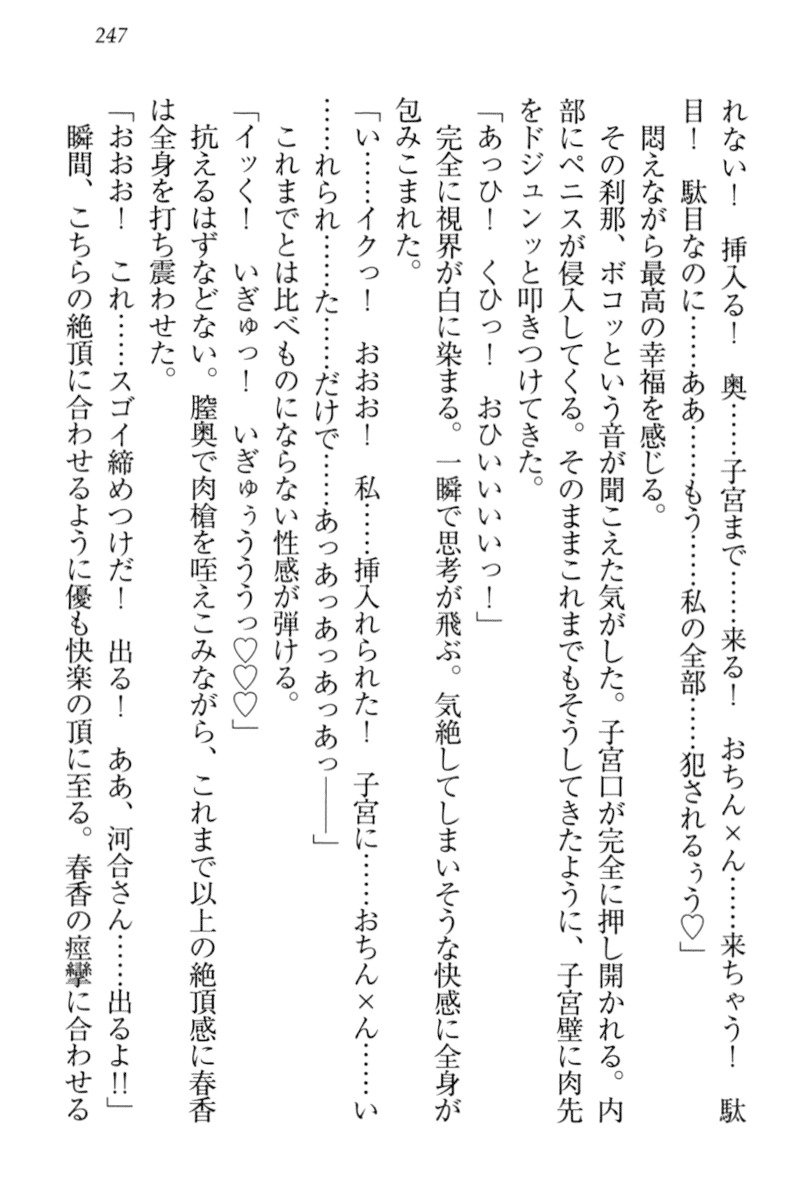 247
れない！　挿入る！　奥……子宮まで……来る！　おちん×ん……来ちゃう！　駄
目！　駄目なのに……ああ……もう……私の全部……犯されるぅう♡」
　悶えながら最高の幸福を感じる。
　その刹那、ボコッという音が聞こえた気がした。子宮口が完全に押し開かれる。内
部にペニスが侵入してくる。そのままこれまでもそうしてきたように、子宮壁に肉先
をドジュンッと叩きつけてきた。
「あっひ！　くひっ！　おひいいいいっ！」
　完全に視界が白に染まる。一瞬で思考が飛ぶ。気絶してしまいそうな快感に全身が
包みこまれた。
「い……イクっ！　おおお！　私……挿入れられた！　子宮に……おちん×ん……い
……れられ……た……だけで……あっあっあっあっあっ――」
　これまでとは比べものにならない性感が弾ける。
「イッく！　いぎゅっ！　いぎゅぅうううっ♡♡♡」
　抗えるはずなどない。膣奥で肉槍を咥えこみながら、これまで以上の絶頂感に春香
は全身を打ち震わせた。
「おおお！　これ……スゴイ締めつけだ！　出る！　ああ、河合さん……出るよ!!」
　瞬間、こちらの絶頂に合わせるように優も快楽の頂に至る。春香の痙攣に合わせる